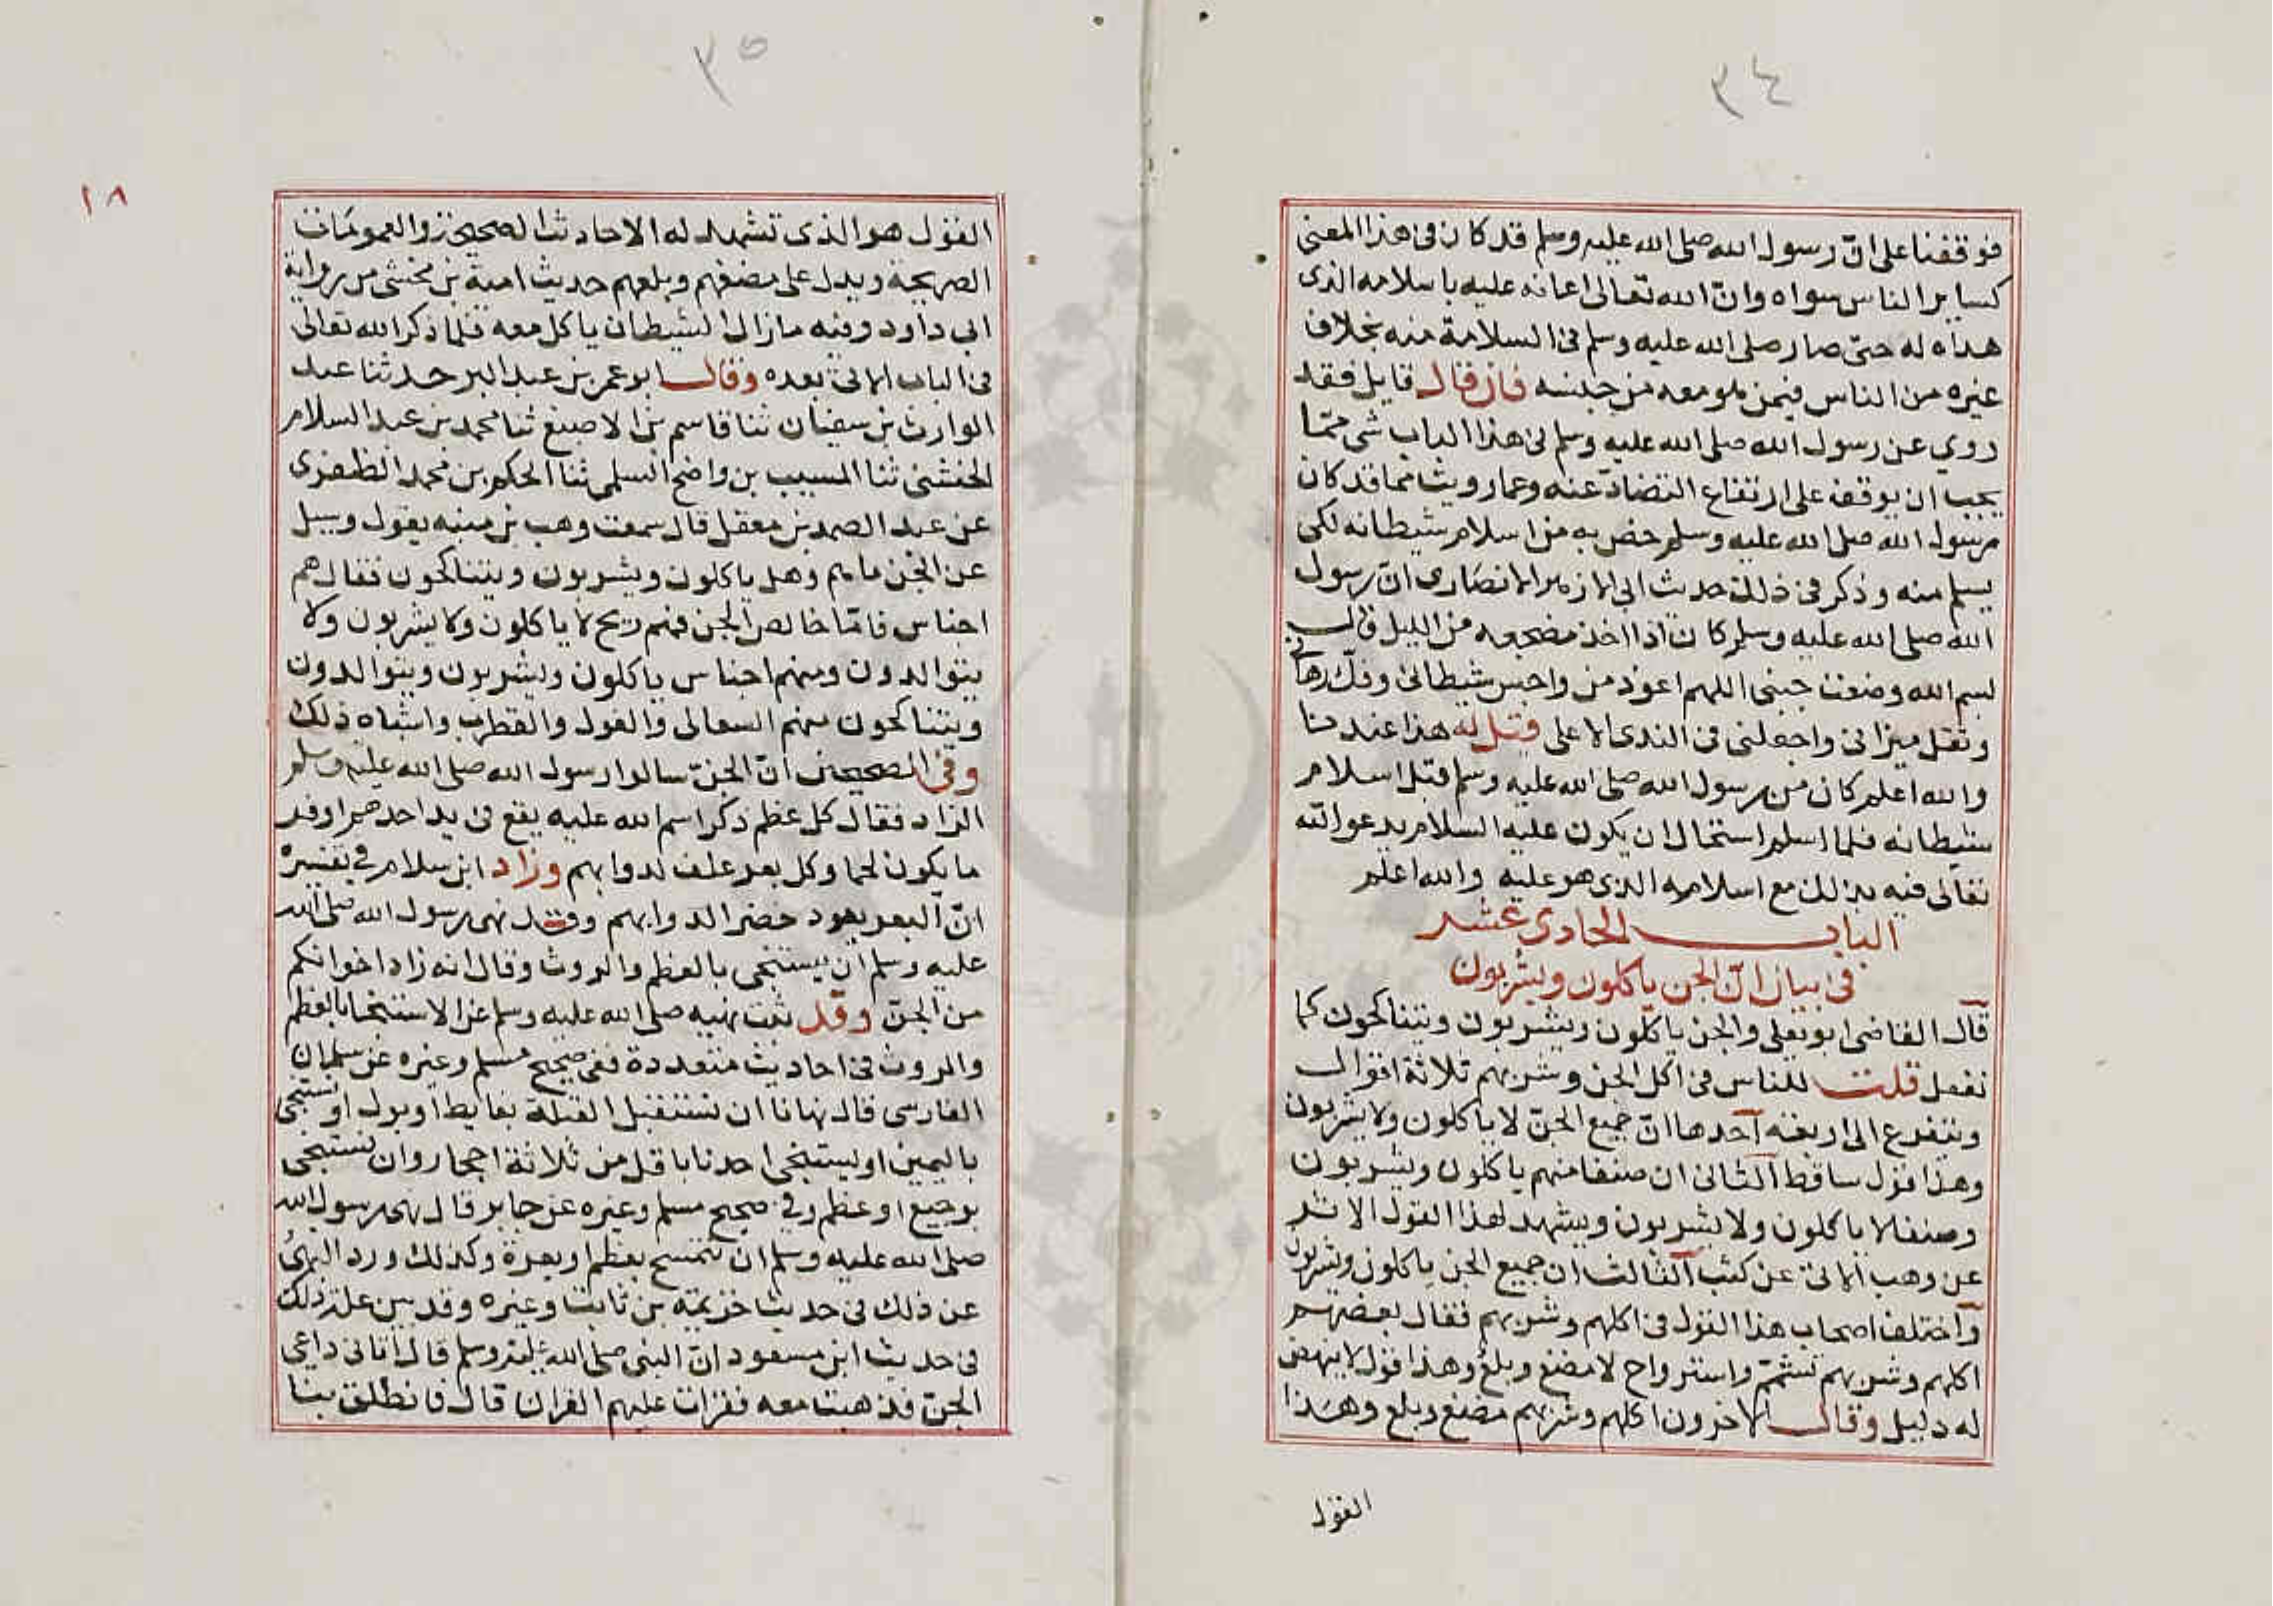 ٣٤
فوقفنا على انّ رسول الله صلى الله عليه وسلم قد كان في هذا المعنى
كساير الناس سواه وانّ الله تعالى اعانه عليه باسلامه الذى
هداه له حتى صار صلى الله عليه وسلم في السلامة منه بخلاف
غيره من الناس فيمن هو معه من جنسه فان قال قايل فقد
روي عن رسول الله صلى الله عليه وسلم في هذا الباب شى ممّا
يجب ان يوقف على ارتفاع التضادّ عنه وعما رويت مما قد كان
رسول الله صلى الله عليه وسلم خص به من اسلام شيطانه لكى
يسلم منه وذكر في ذلك حديث ابي الازهر الانصارى انّ رسول
الله صلى الله عليه وسلم كان اذا اخذ مضجعه من الليل قال
بسم الله وضعت جنبى اللهم اعوذ من واخس شيطاني وفكّ رهاني
وثقل ميزاني واجعلنى في الندى الاعلى قيل له هذا عندنا
والله اعلم كان من رسول الله صلى الله عليه وسلم قبل اسلام
شيطانه فلما اسلم استحال ان يكون عليه السلام يدعو الله
تعالى فيه بذلك مع اسلامه الذى هو عليه والله اعلم
الباب الحادى عشر
في بيان انّ الجن ياكلون ويشربون
قال القاضى ابو يعلى والجن ياكلون ويشربون ويتناكحون كما
نفعل قلت للناس في اكل الجن وشربهم ثلاثة اقوال
ويتفرع الى اربعة آحدها انّ جميع الجنّ لا ياكلون ولا يشربون
وهذا قول ساقط الثانى ان صنفا منهم ياكلون ويشربون
وصنفا لا ياكلون ولا يشربون ويشهد لهذا القول الاثر
عن وهب الاتى عن كثب الثالث ان جميع الجن ياكلون ويشربون
وآختلف اصحاب هذا القول في اكلهم وشربهم فقال بعضهم
اكلهم وشربهم تشمّم واسترواح لا مضغ وبلع وهذا قول لا ينهض
له دليل وقال الاخرون اكلهم وشربهم مضغ وبلع وهذا
القول
٣٥
١٨
القول هو الذى تشهد له الاحاديث الصحيحة والعمومات
الصريحة ويدل على مضغهم وبلعهم حديث امية بن مخشى من رواية
ابي داود وفيه ما زال الشيطان ياكل معه فلما ذكر الله تعالى
في الباب الاتى بعده وقال ابو عمر بن عبد البر حدثنا عبد
الوارث بن سفيان ثنا قاسم بن الاصبغ ثنا محمد بن عبد السلام
الخشنى ثنا المسيب بن واضح السلمى ثنا الحكم بن محمد الظفرى
عن عبد الصمد بن معقل قال سمعت وهب بن منبه يقول وسيل
عن الجن ما هم وهل ياكلون ويشربون ويتناكحون فقال هم
اجناس فامّا خالص الجن فهم ريح لا ياكلون ولا يشربون ولا
يتوالدون ومنهم اجناس ياكلون ويشربون ويتوالدون
ويتناكحون منهم السعالى والغول والقطرب واشباه ذلك
وفي الصحيحين انّ الجنّ سالوا رسول الله صلى الله عليه وسلم
الزاد فقال كل عظم ذكر اسم الله عليه يقع في يد احدهم اوفر
ما يكون لحما وكل بعر علف لدوابهم وزاد ابن سلام في تفسيره
انّ البعر يعود خضرا لدوابهم وقد نهى رسول الله صلى الله
عليه وسلم ان يستنجى بالعظم والروث وقال انه زاد اخوانكم
من الجنّ وقد ثبت نهيه صلى الله عليه وسلم عن الاستنجا بالعظم
والروث في احاديث متعددة ففى صحيح مسلم وغيره عن سلمان
الفارسى قال نهانا ان نستقبل القبلة بغايط او بول او نستنجى
باليمين او يستنجى احدنا باقل من ثلاثة احجار وان نستنجى
برجيع او عظم وفي صحيح مسلم وغيره عن جابر قال نهى رسول الله
صلى الله عليه وسلم ان نتمسح بعظم او بعرة وكذلك ورد النهي
عن ذلك في حديث خزيمة بن ثابت وغيره وقد بين علة ذلك
في حديث ابن مسعود انّ النبى صلى الله عليه وسلم قال اتانى داعى
الجنّ فذهبت معه فقرات عليهم القران قال فانطلق بنا